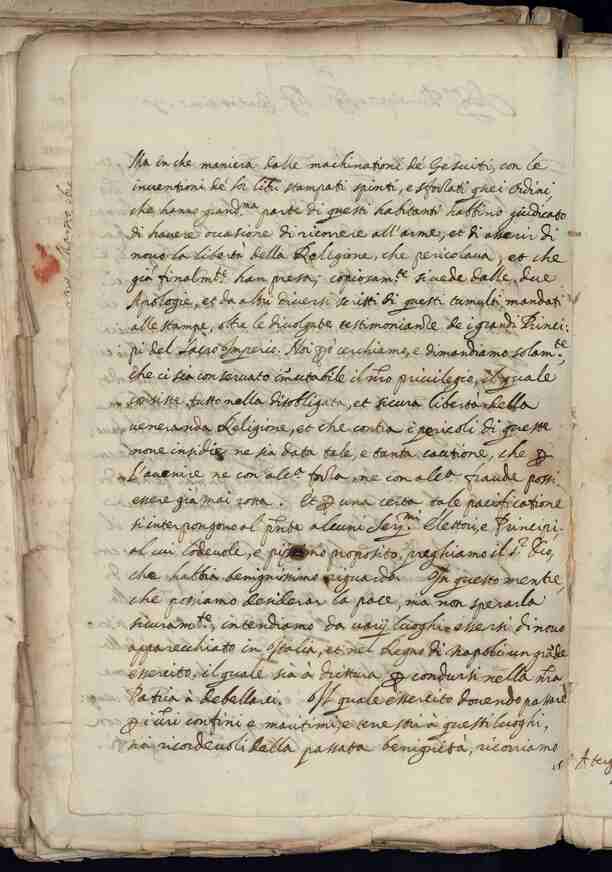 Ma in che maniera dalle machinationi de Gesuiti, con le
inventioni de lor libri stampati spinti, e sforzati quei ordini,
che hanno grand.ma parte di questi habitanti habbino giudicato
di havere occasione di ricorrere all'arme, et di asserir di
novo la libertà della Religione, che pericolava, et che
già finalm.te han presa; copiosam.te si vede dalle due
Apologie, et da altri diversi scritti di questi tumulti mandati
alle stampe, oltre le divolgate testimonianze de i grandi Princi-
pi del Sacro Imperio. Noi però cerchiamo, e dimandiamo solam.te
che ci sia conservato immutabile il nro privilegio, il quale
consiste tutto nella disobligata, et sicura libertà della
veneranda Religione, et che contra i pericoli di queste
nove insidie ne sia data tale, e tanta cautione, che per
l'avenire ne con alca forza, ne con alca fraude possi
essere già mai rotta. Et per una certa tale pacificatione
si interpongono al pnte alcuni Ser.mi Elettori, e Principi,
al cui lodevole, e proposito, preghiamo il S. Dio,
che habbia benignissimo riguardo. In questo mentre,
che possiamo desiderar la pace, ma non sperarla
sicuram.te, intendiamo da varij luoghi essersi di novo
apparecchiato in Italia, et nel Regno di Napoli un grãde
essercito, il quale sia à drittura per condursi nella nra
Patria à debellarci. Il quale essercito dovendo passare
per i vri confini e maritimi, e terrestri à questi luoghi,
noi ricordevoli della passata benignità, ricorriamo
A terg